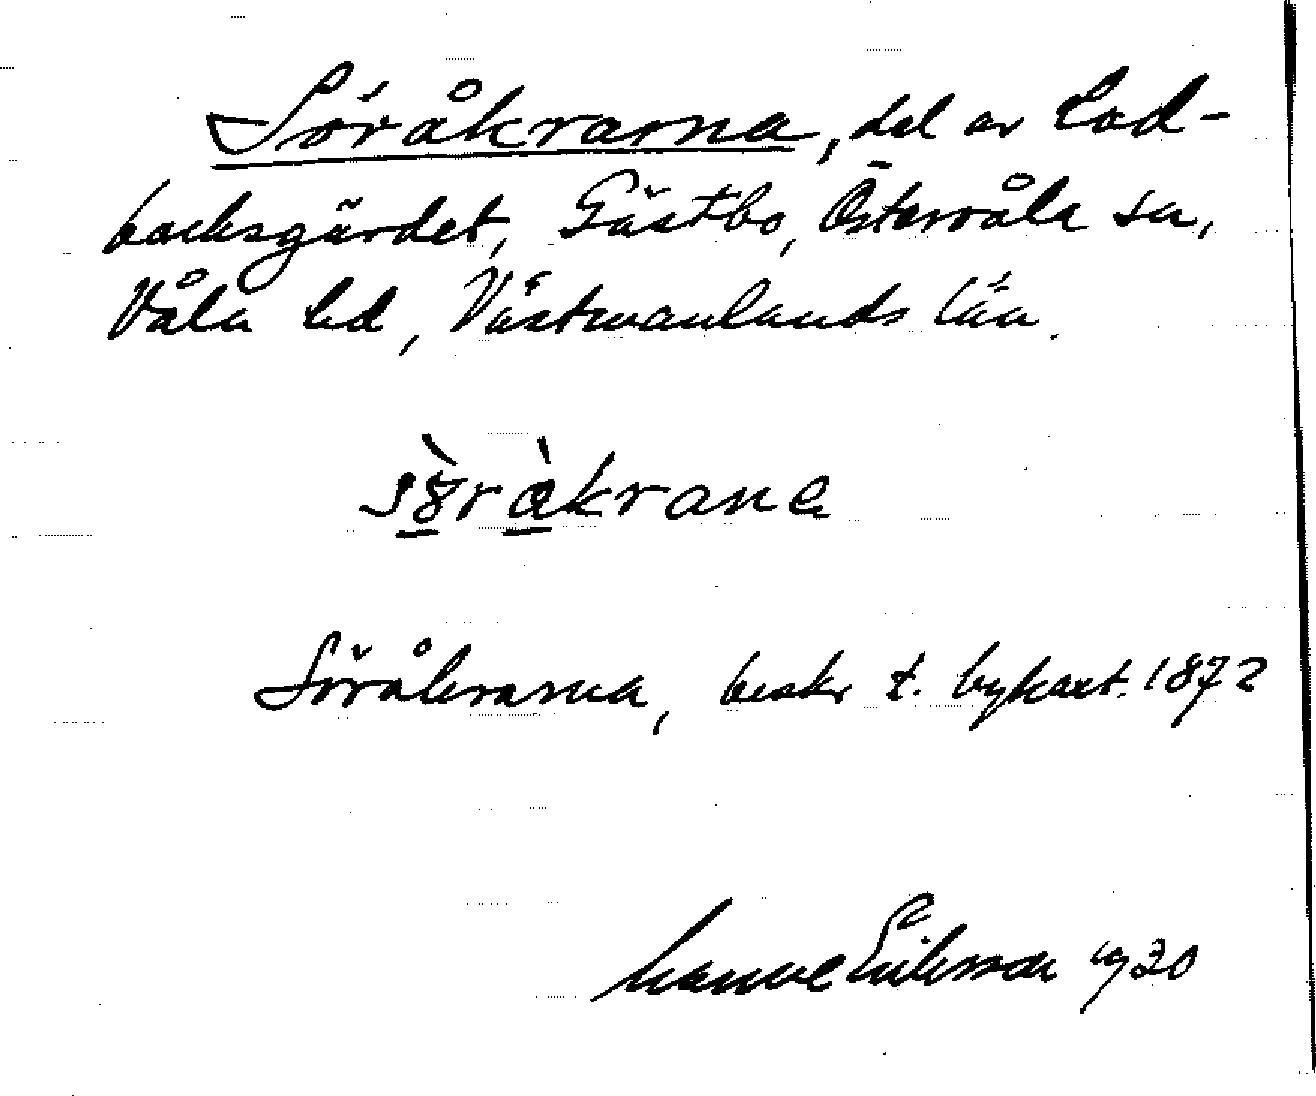 Söråkrarna, del av Lod-
backsgärdet, Gästbo, Östervåla sn,
Våla hd, Västmanlands län.
Söråkrarna, beskr t. bykart. 1872
Manne Eriksson 1930